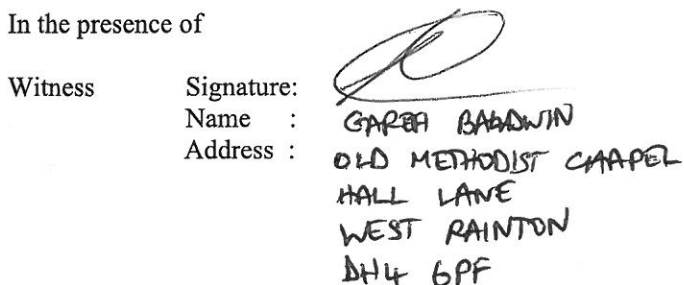 In the presence of
Witness Signature:
Name : BALDWIN
Address : OLD METHODIST CHAPEL
HALL LANE
WEST RAINTON
DH4 6PF